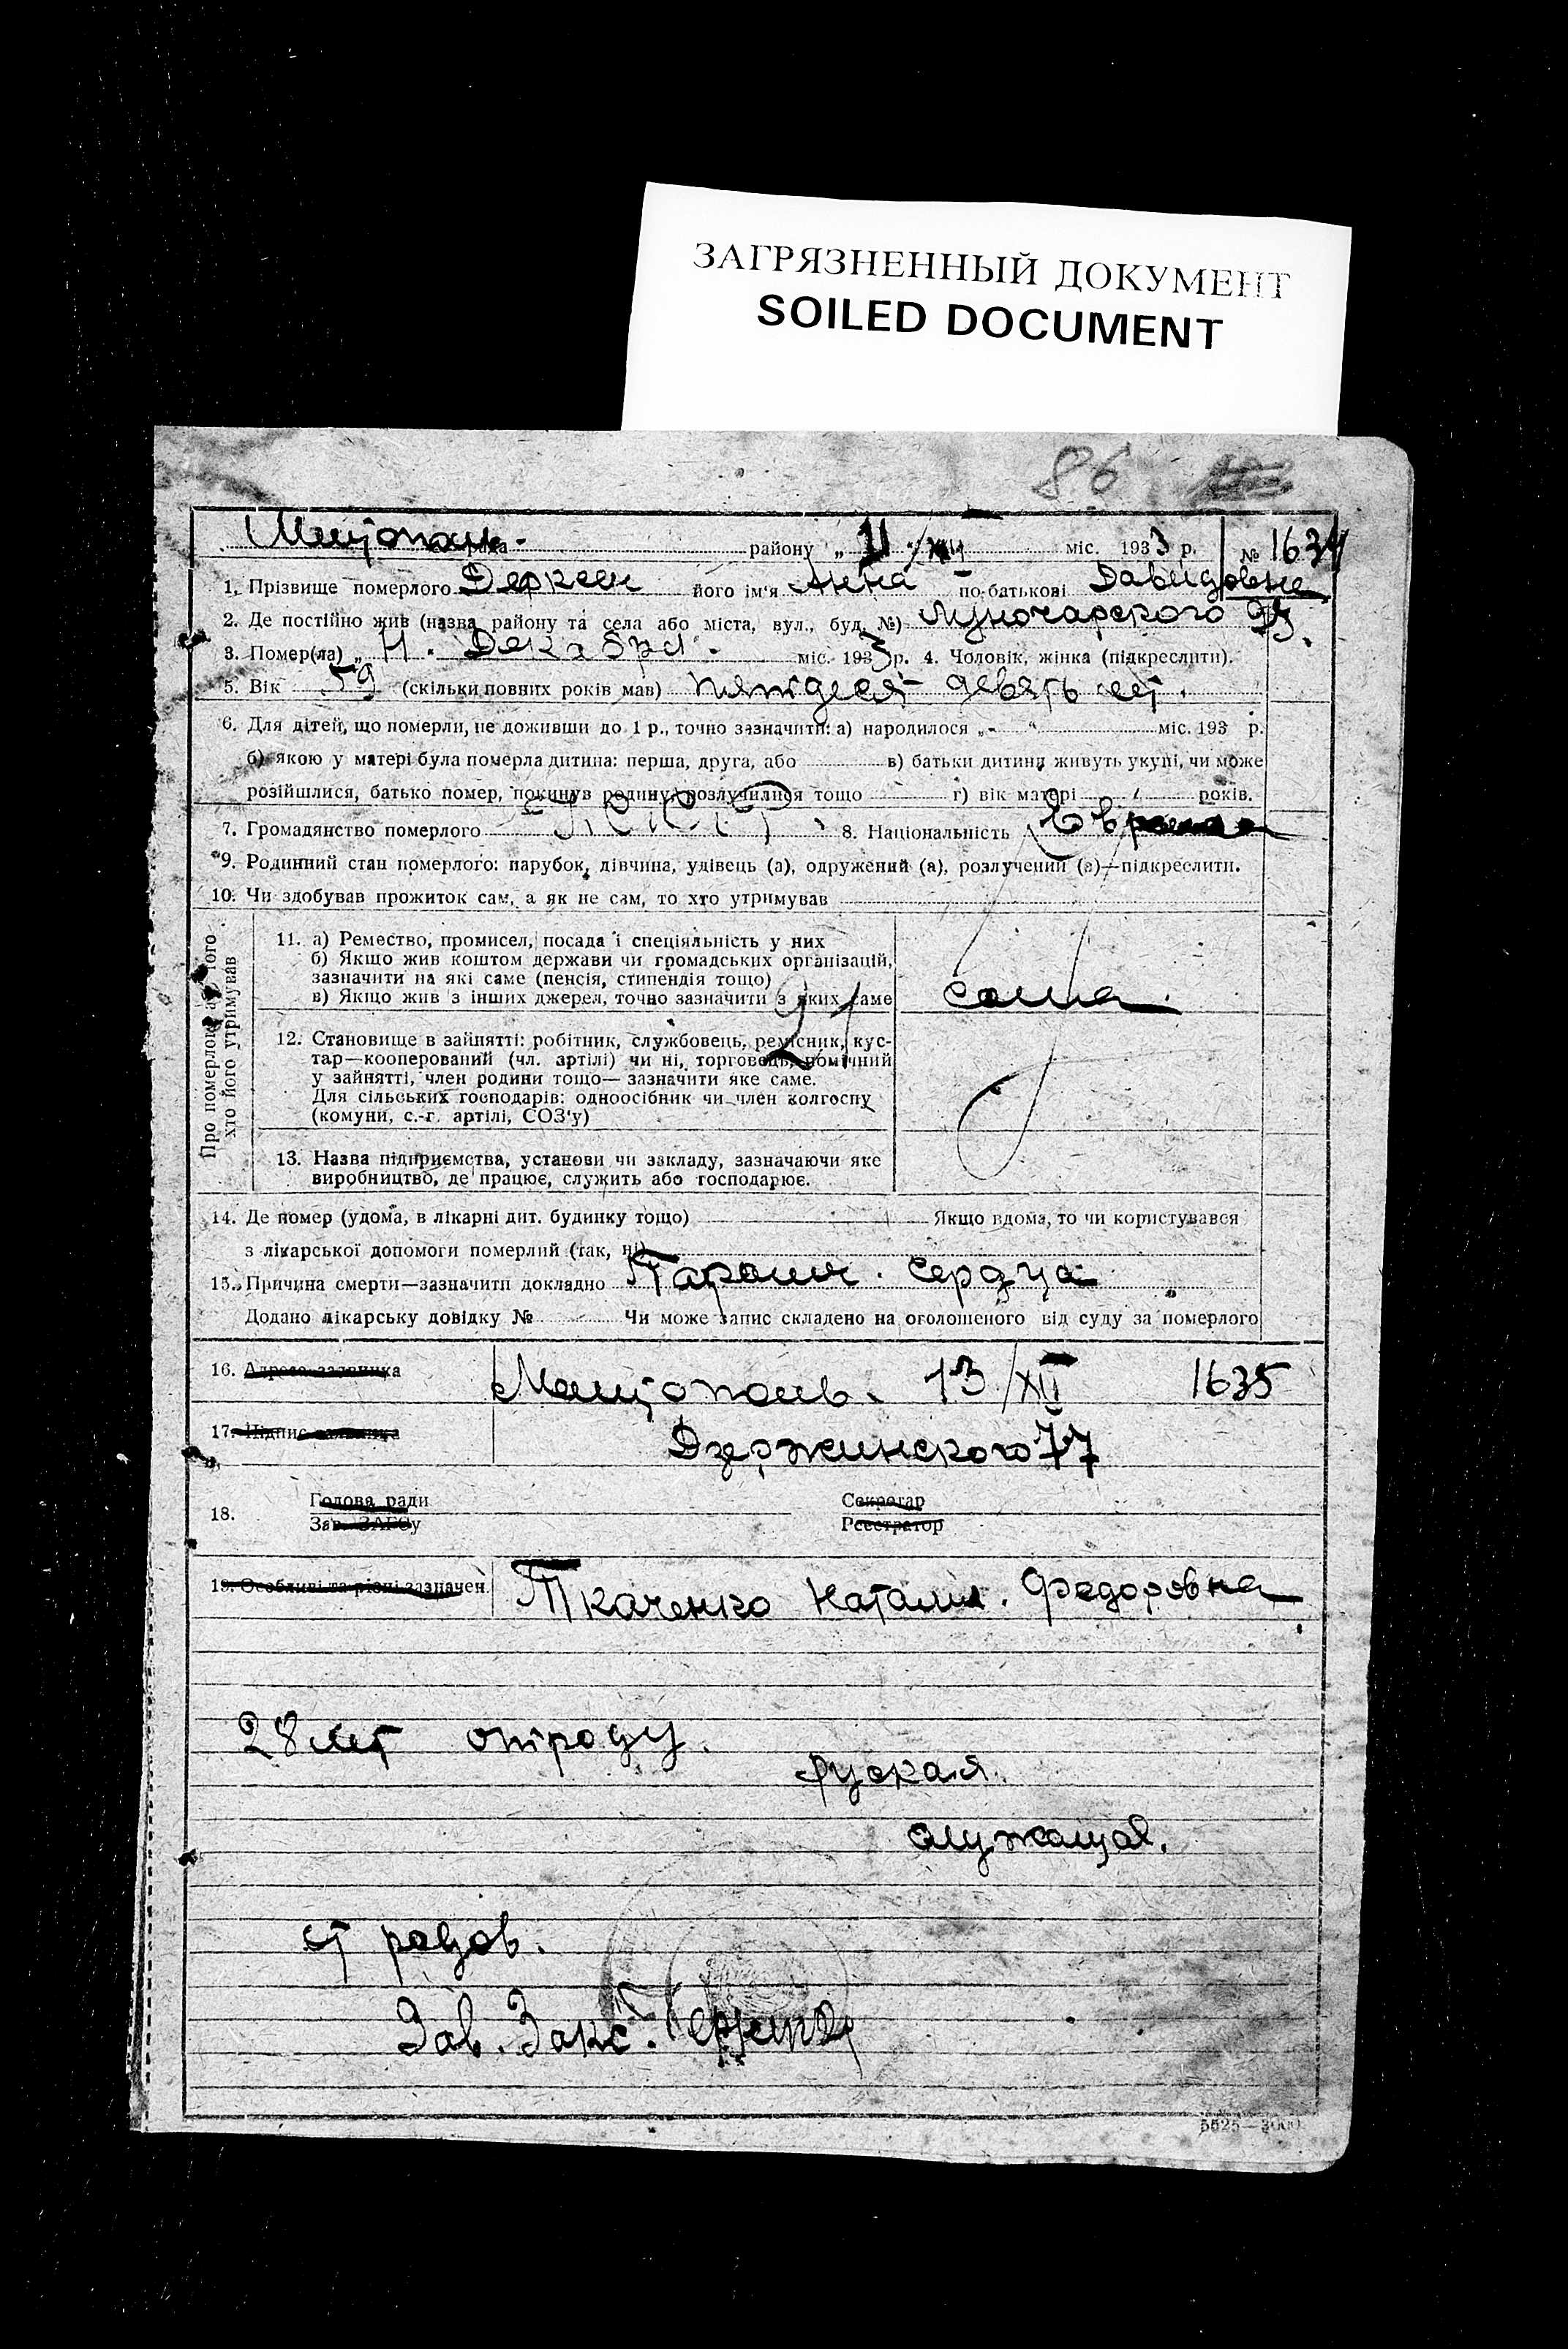 ЗАГРЯЗНЕННЫЙ ДОКУМЕНТ
SOILED DOCUMENT
86
району „ 11 " XII міс. 1933 р. № 1634
1. Прізвище померлого Дерксен його ім'я Анна по-батькові Давидовна
2. Де постійно жив (назва району та села або міста, вул., буд. №) Луночарского
3. Помер(ла) „ 11. Декабря. міс. 1933 р. 4. Чоловік, жінка (підкреслити).
5. Вік 59 (скільки повних років мав) пятдесят девять лет.
6. Для дітей, що померли, не доживши до 1 р., точно зазначити: а) народилося „ " міс. 193 р.
б) якою у матері була померла дитина: перша, друга, або в) батьки дитини живуть укупі, чи може
розійшлися, батько помер, покинув родину, розлучилися тощо г) вік матері років.
7. Громадянство померлого У.С.С.Р. 8. Національність
9. Родинний стан померлого: парубок, дівчина, удівець (а), одружений (а), розлучений (а)—підкреслити.
10. Чи здобував прожиток сам, а як не сам, то хто утримував
Про померлого або того хто його утримував
11. а) Ремество, промисел, посада і спеціяльність у них
б) Якщо жив коштом держави чи громадських організацій,
зазначити на які саме (пенсія, стипендія тощо)
в) Якщо жив з інших джерел, точно зазначити з яких саме
21
12. Становище в зайнятті: робітник, службовець, ремісник, кус-
тар—кооперований (чл. артілі) чи ні, торговець, помічний
у зайнятті, член родини тощо— зазначити яке саме.
Для сільських господарів: одноосібник чи член колгоспу
(комуни, с.-г. артілі, СОЗ'у)
13. Назва підприємства, установи чи закладу, зазначаючи яке
виробництво, де працює, служить або господарює.
14. Де помер (удома, в лікарні дит. будинку тощо) Якщо вдома, то чи користувався
з лікарської допомоги померлий (так, ні)
15. Причина смерти—зазначити докладно Паралич. сердца
Додано лікарську довідку № Чи може запис складено на оголошеного від суду за померлого
16. Адреса заявника 13/XII 1635
17. Підпис заявника Дзержинского 77
18. Голова ради Секретар
Зав. ЗАГСу Реєстратор
19. Особливі та різні зазначен. Ткаченко Наталия. Федоровна
28 лет отроду.
руская.
служащая.
от родов.
Зав. Закс.
5525—3000